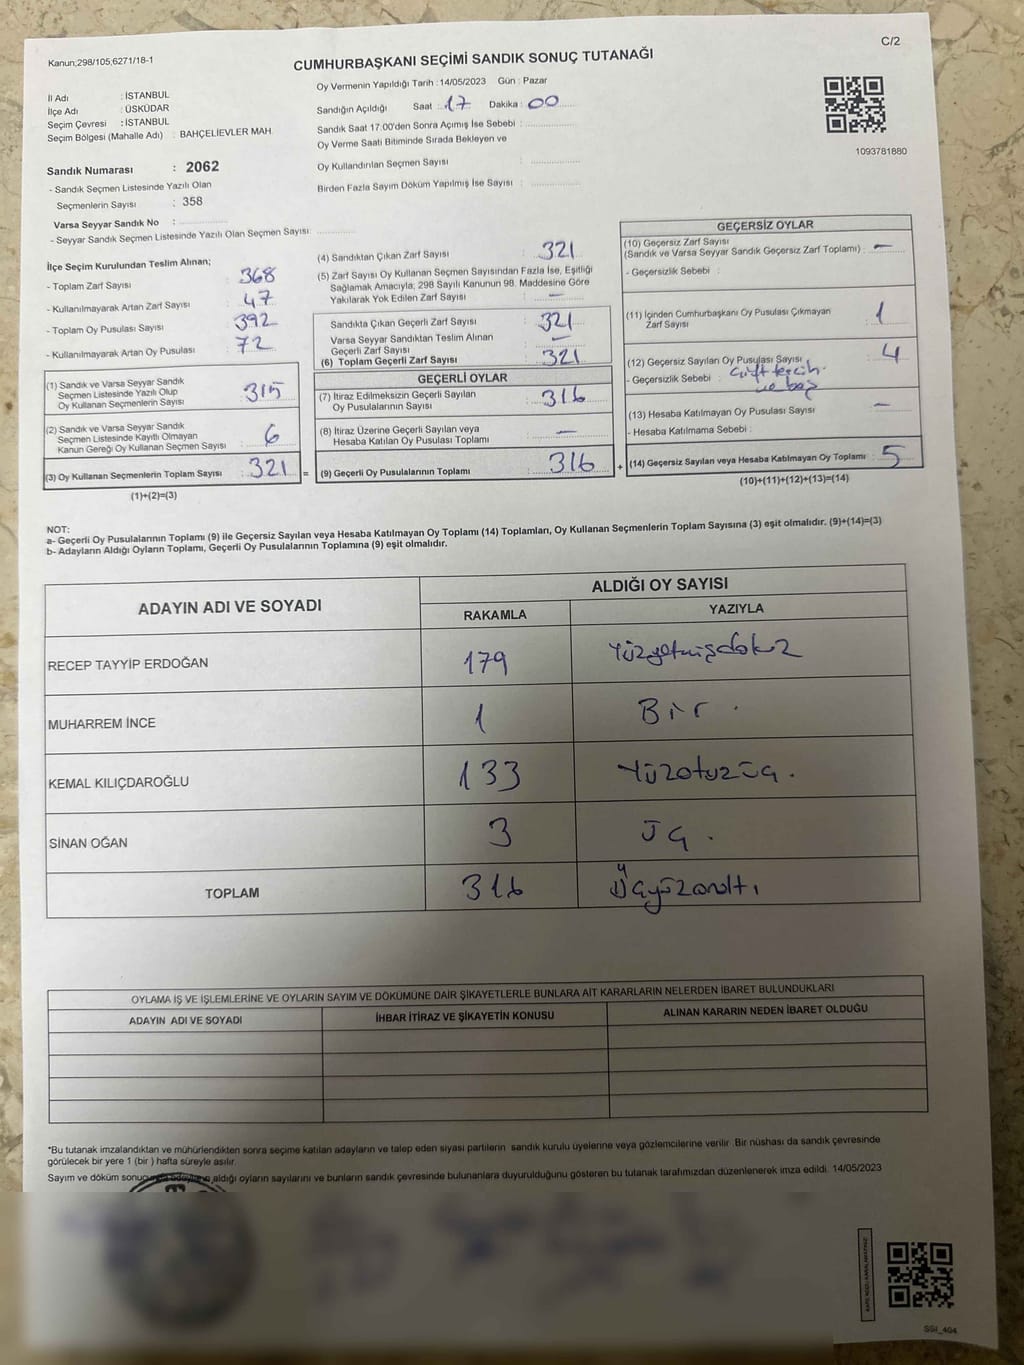 Kanun;298/105,6271/18-1
C/2
CUMHURBAŞKANI SEÇİMİ SANDIK SONUÇ TUTANAĞI
İl Adı : İSTANBUL
İlçe Adı : ÜSKÜDAR
Seçim Çevresi : İSTANBUL
Seçim Bölgesi (Mahalle Adı) : BAHÇELİEVLER MAH.
Sandık Numarası : 2062
- Sandık Seçmen Listesinde Yazılı Olan
Seçmenlerin Sayısı : 358
Varsa Seyyar Sandık No :
- Seyyar Sandık Seçmen Listesinde Yazılı Olan Seçmen Sayısı:
Oy Vermenin Yapıldığı Tarih : 14/05/2023 Gün : Pazar
Sandığın Açıldığı Saat : 17 Dakika : 00
Sandık Saat 17:00'den Sonra Açımış İse Sebebi :
Oy Verme Saati Bitiminde Sırada Bekleyen ve
Oy Kullandırılan Seçmen Sayısı :
Birden Fazla Sayım Döküm Yapılmış İse Sayısı :
1093781880
İlçe Seçim Kurulundan Teslim Alınan;
- Toplam Zarf Sayısı : 368
- Kullanılmayarak Artan Zarf Sayısı : 47
- Toplam Oy Pusulası Sayısı : 392
- Kullanılmayarak Artan Oy Pusulası : 72
(1) Sandık ve Varsa Seyyar Sandık
Seçmen Listesinde Yazılı Olup
Oy Kullanan Seçmenlerin Sayısı : 315
(2) Sandık ve Varsa Seyyar Sandık
Seçmen Listesinde Kayıtlı Olmayan
Kanun Gereği Oy Kullanan Seçmen Sayısı : 6
(3) Oy Kullanan Seçmenlerin Toplam Sayısı : 321 =
(1)+(2)=(3)
(4) Sandıktan Çıkan Zarf Sayısı : 321
(5) Zarf Sayısı Oy Kullanan Seçmen Sayısından Fazla İse, Eşitliği
Sağlamak Amacıyla; 298 Sayılı Kanunun 98. Maddesine Göre
Yakılarak Yok Edilen Zarf Sayısı : —
Sandıkta Çıkan Geçerli Zarf Sayısı : 321
Varsa Seyyar Sandıktan Teslim Alınan
Geçerli Zarf Sayısı : —
(6) Toplam Geçerli Zarf Sayısı : 321
GEÇERLİ OYLAR
(7) İtiraz Edilmeksizin Geçerli Sayılan
Oy Pusulalarının Sayısı : 316
(8) İtiraz Üzerine Geçerli Sayılan veya
Hesaba Katılan Oy Pusulası Toplamı : —
(9) Geçerli Oy Pusulalarının Toplamı : 316 +
GEÇERSİZ OYLAR
(10) Geçersiz Zarf Sayısı
(Sandık ve Varsa Seyyar Sandık Geçersiz Zarf Toplamı) : —
- Geçersizlik Sebebi :
(11) İçinden Cumhurbaşkanı Oy Pusulası Çıkmayan
Zarf Sayısı : 1
(12) Geçersiz Sayılan Oy Pusulası Sayısı : 4
- Geçersizlik Sebebi : Çift tercih
ve boş
(13) Hesaba Katılmayan Oy Pusulası Sayısı : —
- Hesaba Katılmama Sebebi :
(14) Geçersiz Sayılan veya Hesaba Katılmayan Oy Toplamı : 5
(10)+(11)+(12)+(13)=(14)
NOT:
a- Geçerli Oy Pusulalarının Toplamı (9) ile Geçersiz Sayılan veya Hesaba Katılmayan Oy Toplamı (14) Toplamları, Oy Kullanan Seçmenlerin Toplam Sayısına (3) eşit olmalıdır. (9)+(14)=(3)
b- Adayların Aldığı Oyların Toplamı, Geçerli Oy Pusulalarının Toplamına (9) eşit olmalıdır.
ADAYIN ADI VE SOYADI
ALDIĞI OY SAYISI
RAKAMLA YAZIYLA
RECEP TAYYİP ERDOĞAN 179 Yüzyetmişdokuz
MUHARREM İNCE 1 Bir.
KEMAL KILIÇDAROĞLU 133 Yüzotuzüç.
SİNAN OĞAN 3 Üç.
TOPLAM 316 Üçyüzonaltı
OYLAMA İŞ VE İŞLEMLERİNE VE OYLARIN SAYIM VE DÖKÜMÜNE DAİR ŞİKAYETLERLE BUNLARA AİT KARARLARIN NELERDEN İBARET BULUNDUKLARI
ADAYIN ADI VE SOYADI İHBAR İTİRAZ VE ŞİKAYETİN KONUSU ALINAN KARARIN NEDEN İBARET OLDUĞU
*Bu tutanak imzalandıktan ve mühürlendikten sonra seçime katılan adayların ve talep eden siyasi partilerin sandık kurulu üyelerine veya gözlemcilerine verilir. Bir nüshası da sandık çevresinde
görülecek bir yere 1 (bir) hafta süreyle asılır.
Sayım ve döküm sonucunda adayların aldığı oyların sayılarını ve bunların sandık çevresinde bulunanlara duyurulduğunu gösteren bu tutanak tarafımızdan düzenlenerek imza edildi. 14/05/2023
SSI_404